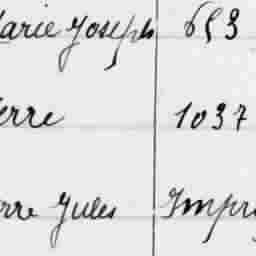 Marie Joseph 653
erre 1037
erre Jules Impr